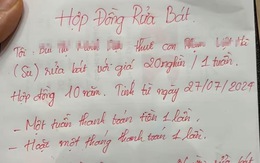 Hợp Đồng Rửa Bát.
Tôi: Bùi Thị thuê con Hà
(Su) rửa bát với giá 20 nghìn / 1 tuần.
Hợp đồng 10 năm. Tính từ ngày 27/07/2024
- Một tuần thanh toán tiền 1 lần.
- Hoặc một tháng thanh toán 1 lần.